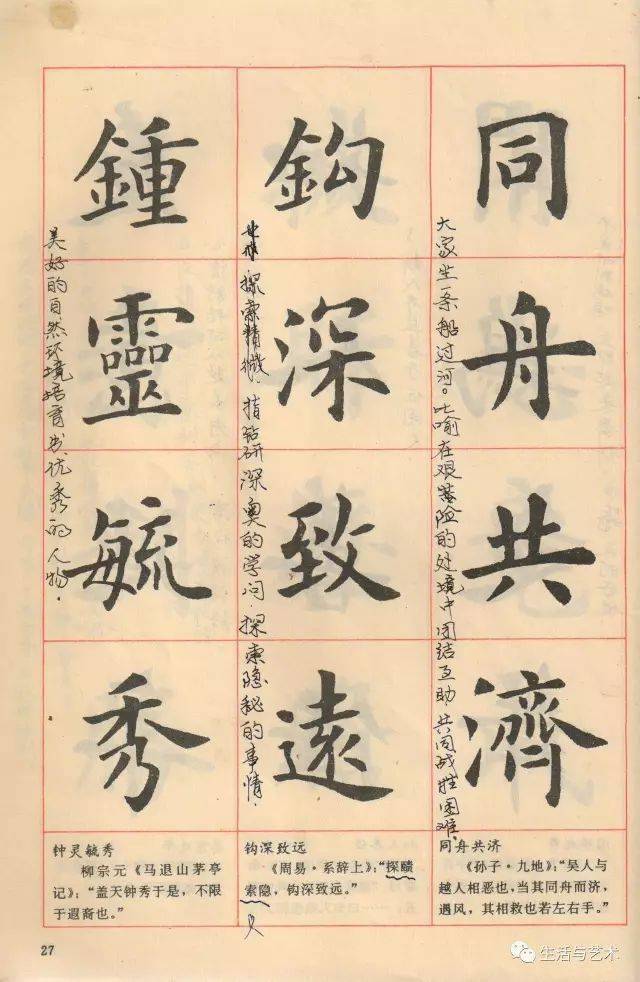 同舟共濟
大家坐一条船过河。比喻在艰险的处境中团结互助,共同战胜困难.
鈎深致遠
探索精微.指钻研深奥的学问.探索隐秘的事情.
鍾靈毓秀
美好的自然环境培育出优秀的人物.
同舟共济
《孙子·九地》:“吴人与
越人相恶也,当其同舟而济,
遇风,其相救也若左右手。”
钩深致远
《周易·系辞上》:“探赜
索隐,钩深致远。”
钟灵毓秀
柳宗元《马退山茅亭
记》:“盖天钟秀于是,不限
于遐裔也。”
27
生活与艺术